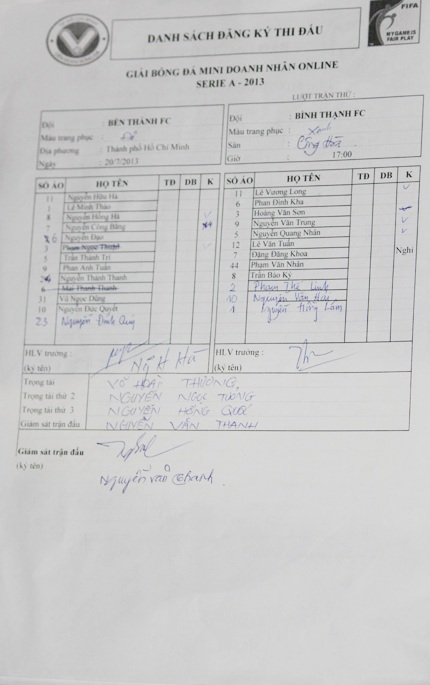 DANH SÁCH ĐĂNG KÝ THI ĐẤU
FIFA
MY GAME IS
FAIR PLAY
GIẢI BÓNG ĐÁ MINI DOANH NHÂN ONLINE
SERIE A - 2013
LƯỢT TRẬN THỨ :
Đội : BẾN THÀNH FC
Màu trang phục : Đỏ
Địa phương : Thành phố Hồ Chí Minh
Ngày : 20/7/2013
Đội : BÌNH THẠNH FC
Màu trang phục : Xanh
Sân : Cộng Hòa
Giờ : 17:00
SỐ ÁO HỌ TÊN TĐ DB K
11 Nguyễn Hữu Hà
1 Lê Minh Thảo
8 Nguyễn Hồng Hà
7 Nguyễn Công Bằng
6 Nguyễn Đạo
3 Phạm Ngọc
5 Trần Thành Trí
9 Phan Anh Tuấn
Nguyễn Thành Thành
6 Mai Thanh Thanh
31 Võ Ngọc Dũng
10 Nguyễn Đức Quyết
23 Nguyễn Đình Quý
SỐ ÁO HỌ TÊN TĐ DB K
11 Lê Vương Long
6 Phan Đình Kha
3 Hoàng Văn Sơn
9 Nguyễn Văn Trung
5 Nguyễn Quang Nhân
12 Lê Văn Tuấn
7 Đặng Đăng Khoa
44 Phạm Văn Nhân
8 Trần Bảo Ký
2 Phạm Thế Linh
10 Nguyễn Văn
1 Nguyễn Hồng Lâm
Nghỉ
HLV trưởng :
(ký tên)
HLV trưởng :
(ký tên)
Trọng tài VÕ HOÀI THƯƠNG
Trọng tài thứ 2 NGUYỄN NGỌC TƯỜNG
Trọng tài thứ 3 NGUYỄN HỒNG QUỐC
Giám sát trận đấu NGUYỄN VĂN THANH
Giám sát trận đấu
(ký tên)
Nguyễn Văn Thanh